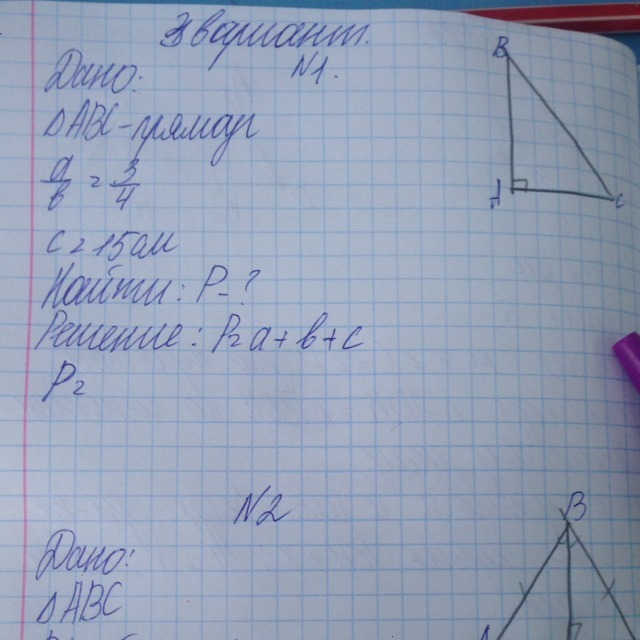 3 вариант.
N1.
Дано:
ΔABC - прямоуг
a/b = 3/4
c = 15 см
Найти: P - ?
Решение: P = a + b + c
P =
B
A
C
N2
Дано:
ΔABC
B